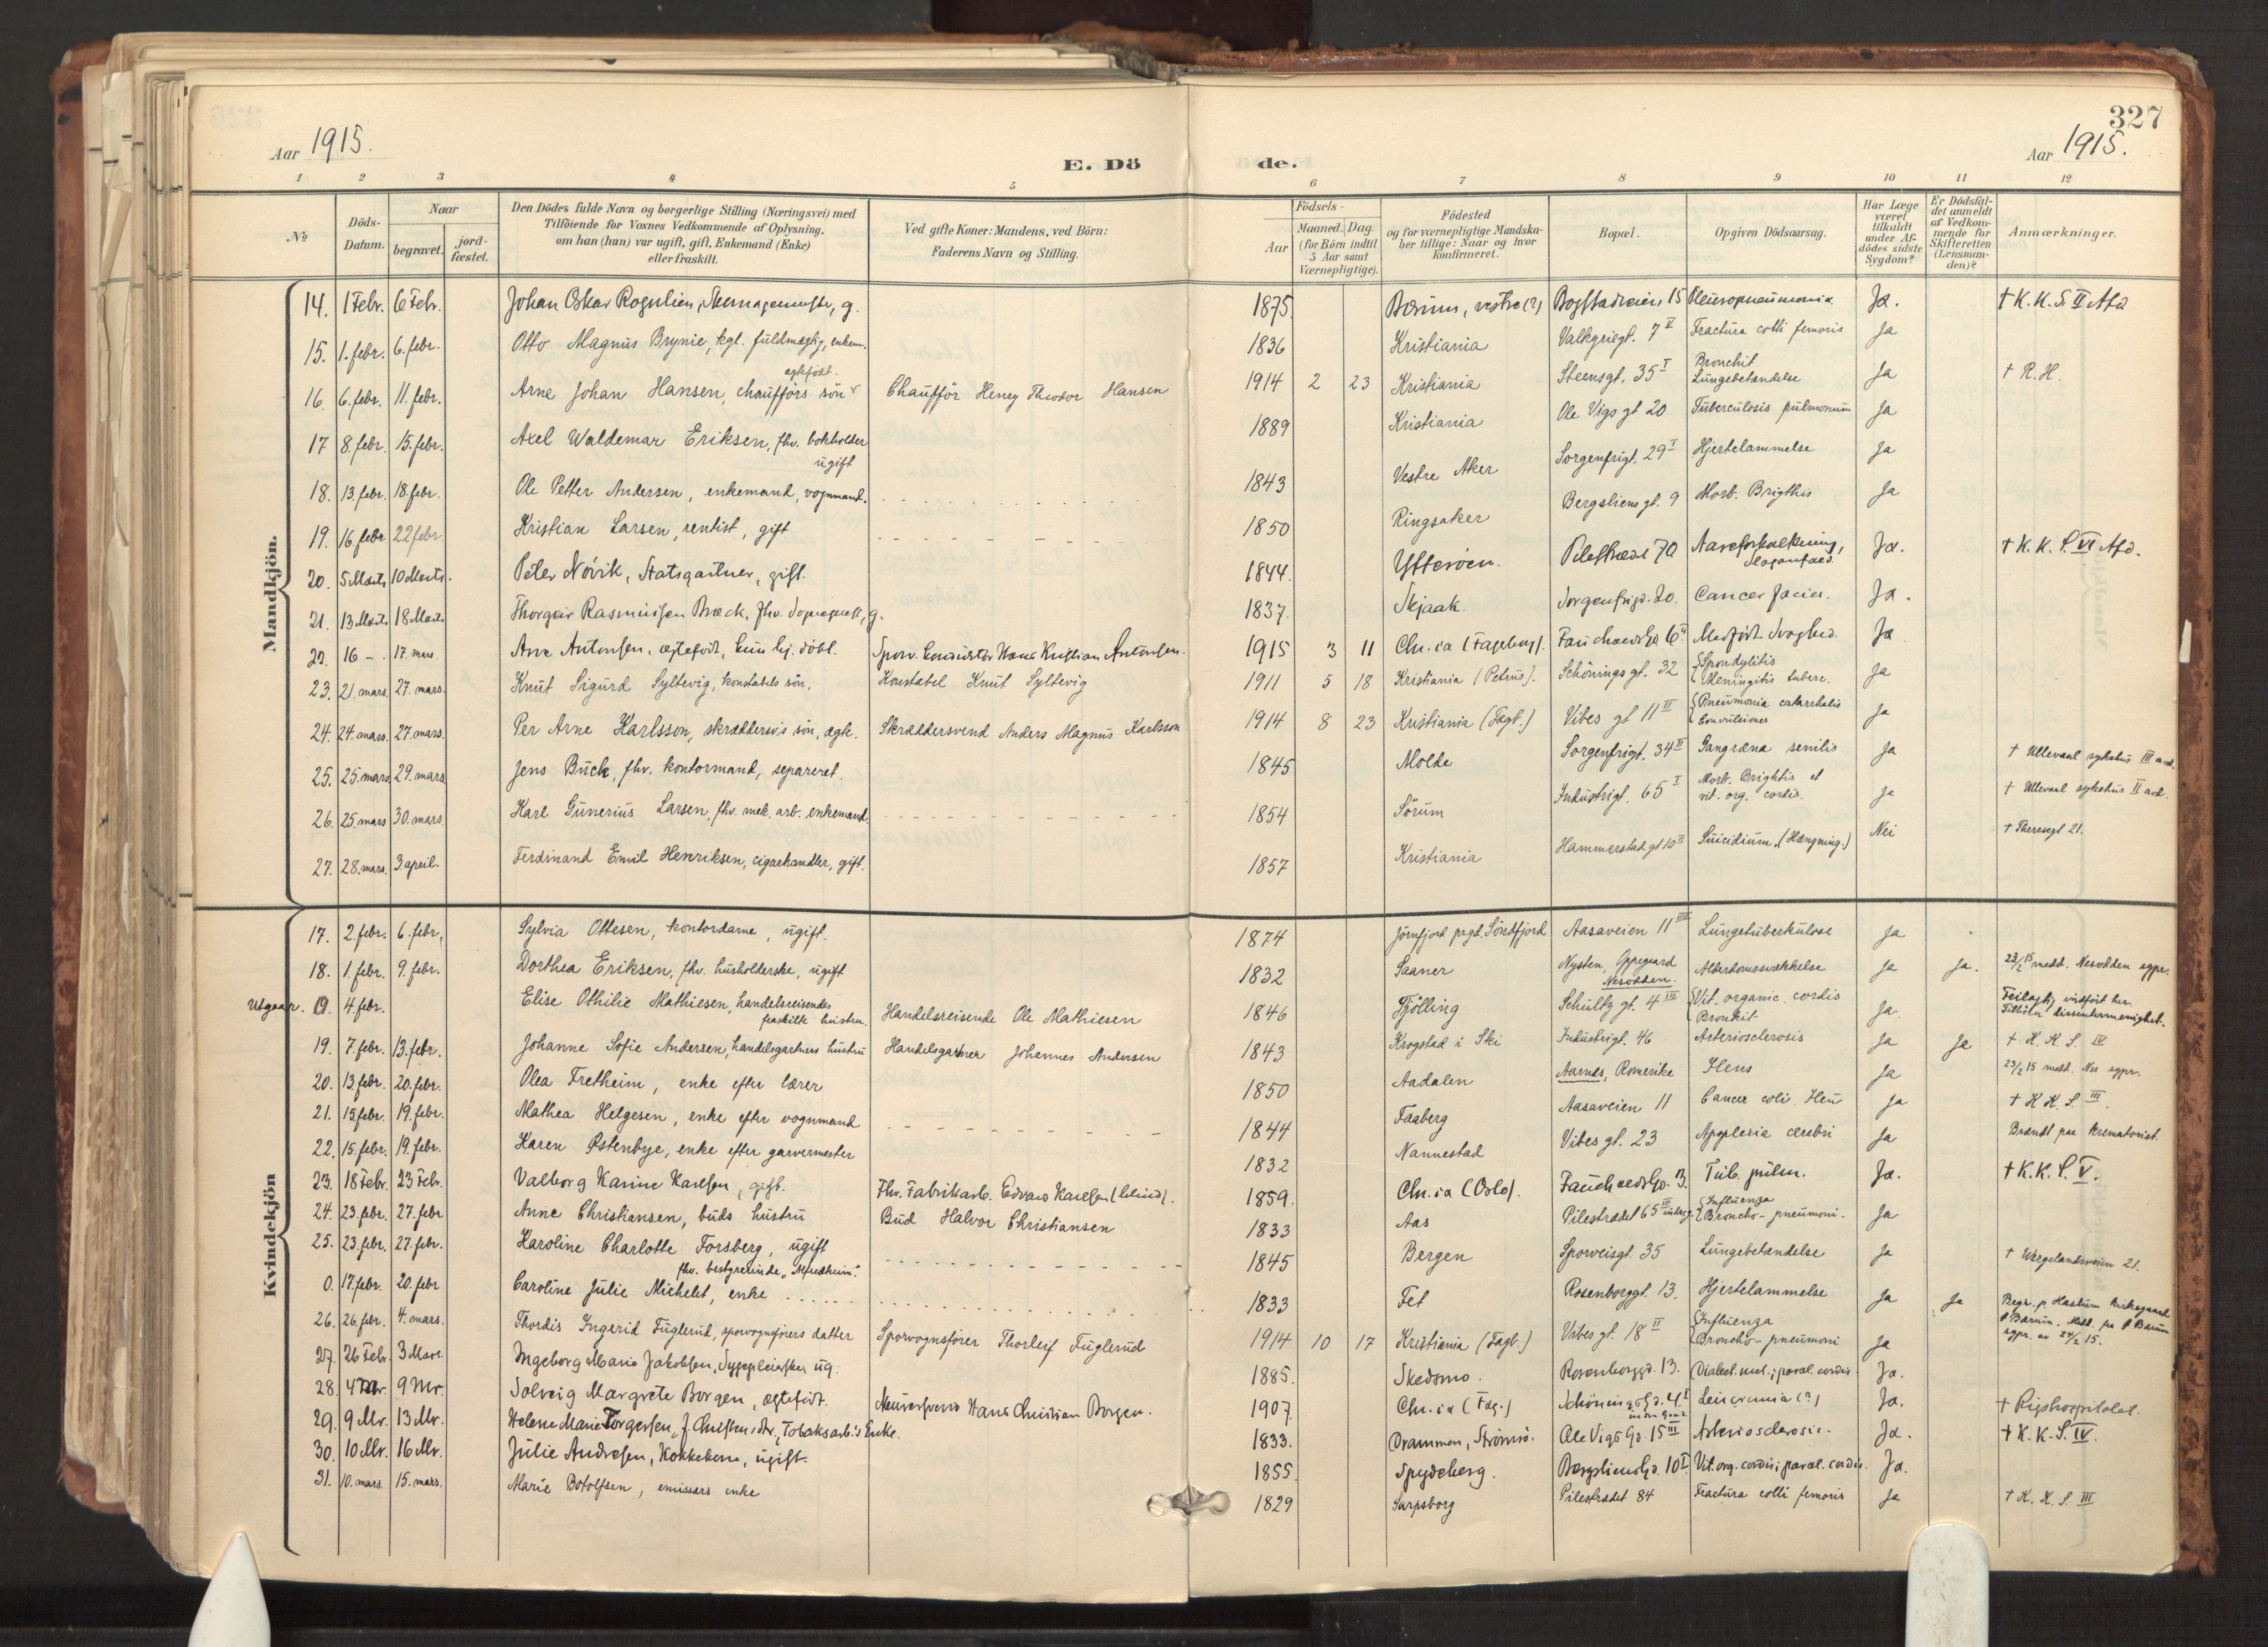 327
Aar 1915.
E. Dö
de.
Aar 1915.
1 2 3 4 5 6 7 8 9 10 11 12
No
Döds-Datum.
Naar
begravet.
jord-fæstet.
Den Dödes fulde Navn og borgerlige Stilling (Næringsvei) med
Tilföiende for Voxnes Vedkommende af Oplysning,
om han (hun) var ugift, gift, Enkemand (Enke)
eller fraskilt.
Ved gifte Koner: Mandens, ved Börn:
Faderens Navn og Stilling.
Födsels-
Aar
Maaned. Dag.
(for Börn indtil
5 Aar samt
Værnepligtige).
Födested
og for værnepligtige Mandska-
ber tillige: Naar og hvor
konfirmeret.
Bopæl.
Opgiven Dödsaarsag.
Har Læge
været
tilkaldt
under Af-
dödes sidste
Sygdom?
Er Dödsfal-
det anmeldt
af Vedkom-
mende for
Skifteretten
(Lensman-
den)?
Anmærkninger.
Mandkjön.
14. 1 Febr. 6 Febr. Johan Oskar Rognlien, g. 1875. Bærum, vestre (?) Bogstadveien 15 Pleuropneumonia Ja. † K. K. S. II Afd
15. 1. febr. 6. febr. Otto Magnus Brynie, kgl. fuldmægtig, enkem. 1836 Kristiania Valkyriegt. 7 II Fractura colli femoris Ja
16. 6. febr. 11. febr. Arne Johan Hansen, chaufförs sön ægtefödt. Chaufför Henry Theodor Hansen 1914 2 23 Kristiania Steensgt. 35 I Bronchit Lungebetændelse Ja † R. H.
17 8. febr. 15. febr. Axel Waldemar Eriksen, fhv. bokholder ugift 1889 Kristiania Ole Vigs gt 20 Tuberculosis pulmonum Ja
18. 13. febr. 18. febr. Ole Petter Andersen, enkemand, vognmand. 1843 Vestre Aker Sorgenfrigt. 29 I Hjertelammelse Ja
19. 16. febr 22 febr. Kristian Larsen, rentist, gift 1850 Ringsaker Bergsliens gt. 9 Morb. Brigthis Ja
20. 5 Marts 10 Marts. Peter Növik, Statsgartner, gift. 1844. Ytteröen. Pilestræde 70 Aareforkalkning, Slaganfald. Ja. † K. K. S. VI Afd.
21. 13 Marts 18 Marts. Thorgeir Rasmussen Bræck, fhv. Sogneprest, g. 1837. Skjaak. Sorgenfrigd. 20. Cancer faciei. Ja.
22. 16 - . 17. mars. Arne Antonsen, ægtefödt, kun hj. döbt. Sporv. konduktör Hans Kristian Antonsen. 1915 3 11 Chr.ia (Fagerborg). Fauchaldsgd. 6 II Medfödt Svaghed. Ja
23. 21. mars. 27. mars. Knut Sigurd Syltevig, konstabels sön. Konstabel Knut Syltevig 1911 5 18 Kristiania (Petrus). Schönings gt. 32 Spondylitis Meningitis tuberc. Ja
24. 24. mars. 27. mars. Per Arne Karlsson, skræddersv.s sön, ægte. Skræddersvend Anders Magnus Karlsson 1914 8 23 Kristiania (Fagb.) Vibes gt 11 II Pneumonia catarrhalis Convulsiones Ja
25. 25. mars 29. mars Jens Buck, fhv. kontormand, separeret. 1845 Molde Sorgenfrigt. 34 II Gangræna senilis Ja † Ullevaal sykehus III avd.
26. 25. mars 30. mars. Karl Gunerius Larsen, fhv. mek. arb. enkemand 1854 Sörum Industrigt. 65 I Morb. Brightis et vit. org. cordis. Ja † Ullevaal sykehus II avd.
27. 28. mars. 3. april. Ferdinand Emil Henriksen, cigarhandler, gift. 1857 Kristiania Hammerstad gt 10 II Suicidium. (Hængning.) Nei † Theresegt 21.
Kvindekjön
17. 2. febr. 6. febr. Sylvia Ottesen, kontordame, ugift. 1874 Jörnfjord prgd. Söndfjord Aasaveien 11 III Lungetuberkulose Ja
18. 1. febr. 9. febr. Dorthea Eriksen, fhv. husholderske, ugift 1832 Saaner Nysten, Oppegaard Nesodden. Alderdomssvækkelse Ja Ja. 23/2 15 medd. Nesodden sgpr.
Utgaar. 19. 4. febr. Elise Othilie Mathiesen, handelsreisendes fraskilte hustru. Handelsreisende Ole Mathiesen 1846 Tjölling Schultz gt. 4 III Vit. organic. cordis Bronkit Ja. Feilagtig indfört her. Tilhörer dissentermenighet.
19. 7. febr. 13. febr. Johanne Sofie Andersen, handelsgartners hustru Handelsgartner Johannes Andersen 1843 Krogstad i Ski Industrigt. 46 Arteriosclerosis Ja Ja † K. K. S. IV
20. 13. febr. 20. febr. Olea Fretheim, enke efter lærer 1850 Aadalen Aarnes, Romerike Ileus Ja 23/2 15 medd. Nes sgpr.
21. 15 febr. 19. febr. Mathea Helgesen, enke efter vognmand 1844 Faaberg Aasaveien 11 Cancer coli Ileu Ja † K. K. S. III.
22. 15. febr. 19. febr. Karen Østenbye, enke efter garvermester 1832 Nannestad Vibes gt. 23 Apoplexia cerebri Ja Brændt paa krematoriet.
23. 18 Febr. 23 Febr. Valborg Karine Karlsen, gift. Fhv. Fabrikarb. Edvard Karlsen (blind). 1859. Chr.ia (Oslo). Fauchaldsgd. 3. Tub. pulm. Ja. † K. K. S. V.
24. 23. febr. 27. febr Anne Christiansen, buds hustru Bud Halvor Christiansen 1833 Aas Pilestrædet 65 III Influenza Broncho-pneumoni. Ja
25. 23. febr. 27. febr. Karoline Charlotte Forsberg, ugift fhv. bestyrerinde „Alfredheim". 1845 Bergen Sporveisgt. 35 Lungebetændelse Ja † Wergelandsveien 21.
0. 17. febr. 20. febr Caroline Julie Michelet, enke 1833 Fet Rosenborggt. 13. Hjertelammelse Ja Ja Begr. p. Haslum kirkegaard i Bærum. Medd. fra Bærum sgpr. av 24/2 15.
26. 26. febr. 4. mars. Thordis Ingerid Fuglerud, sporvognsförers datter Sporvognsförer Thorleif Fuglerud 1914 10 17 Kristiania (Fagb.) Vibes gt. 18 II Influenza Broncho-pneumoni Ja
27. 26 Febr. 3 Mars. Ingeborg Marie Jakobsen, Sygepleierske, ug. 1885. Skedsmo. Rosenborggd. 13. Diabet. mel.; paral. cordis Ja.
28. 4 Mr. 9 Mr. Solveig Margrete Borgen, ægtefödt. Murersvend Hans Christian Borgen. 1907. Chr.ia (Fag.) Schöningsgd. 4 I Leucæmia (?) Ja. † Rigshospitalet.
29. 9 Mr. 13 Mr. Helene Marie Torgersen, f. Christensdtr., Tobaksarb.'s Enke. 1833. Drammen, Strömsö. Ole Vigs Gd. 15 III Arteriosclerosis. Ja. † K. K. S. IV.
30. 10 Mr. 16 Mr. Julie Andresen, Kokkekone, ugift. 1855. Spydeberg. Bergsliensgd. 10 I Vit. org. cordis; paral. cordis. Ja.
31. 10. mars. 15. mars. Marie Botolfsen, emissærs enke 1829 Sarpsborg Pilestrædet 84 Fractura colli femoris Ja † K. K. S. III